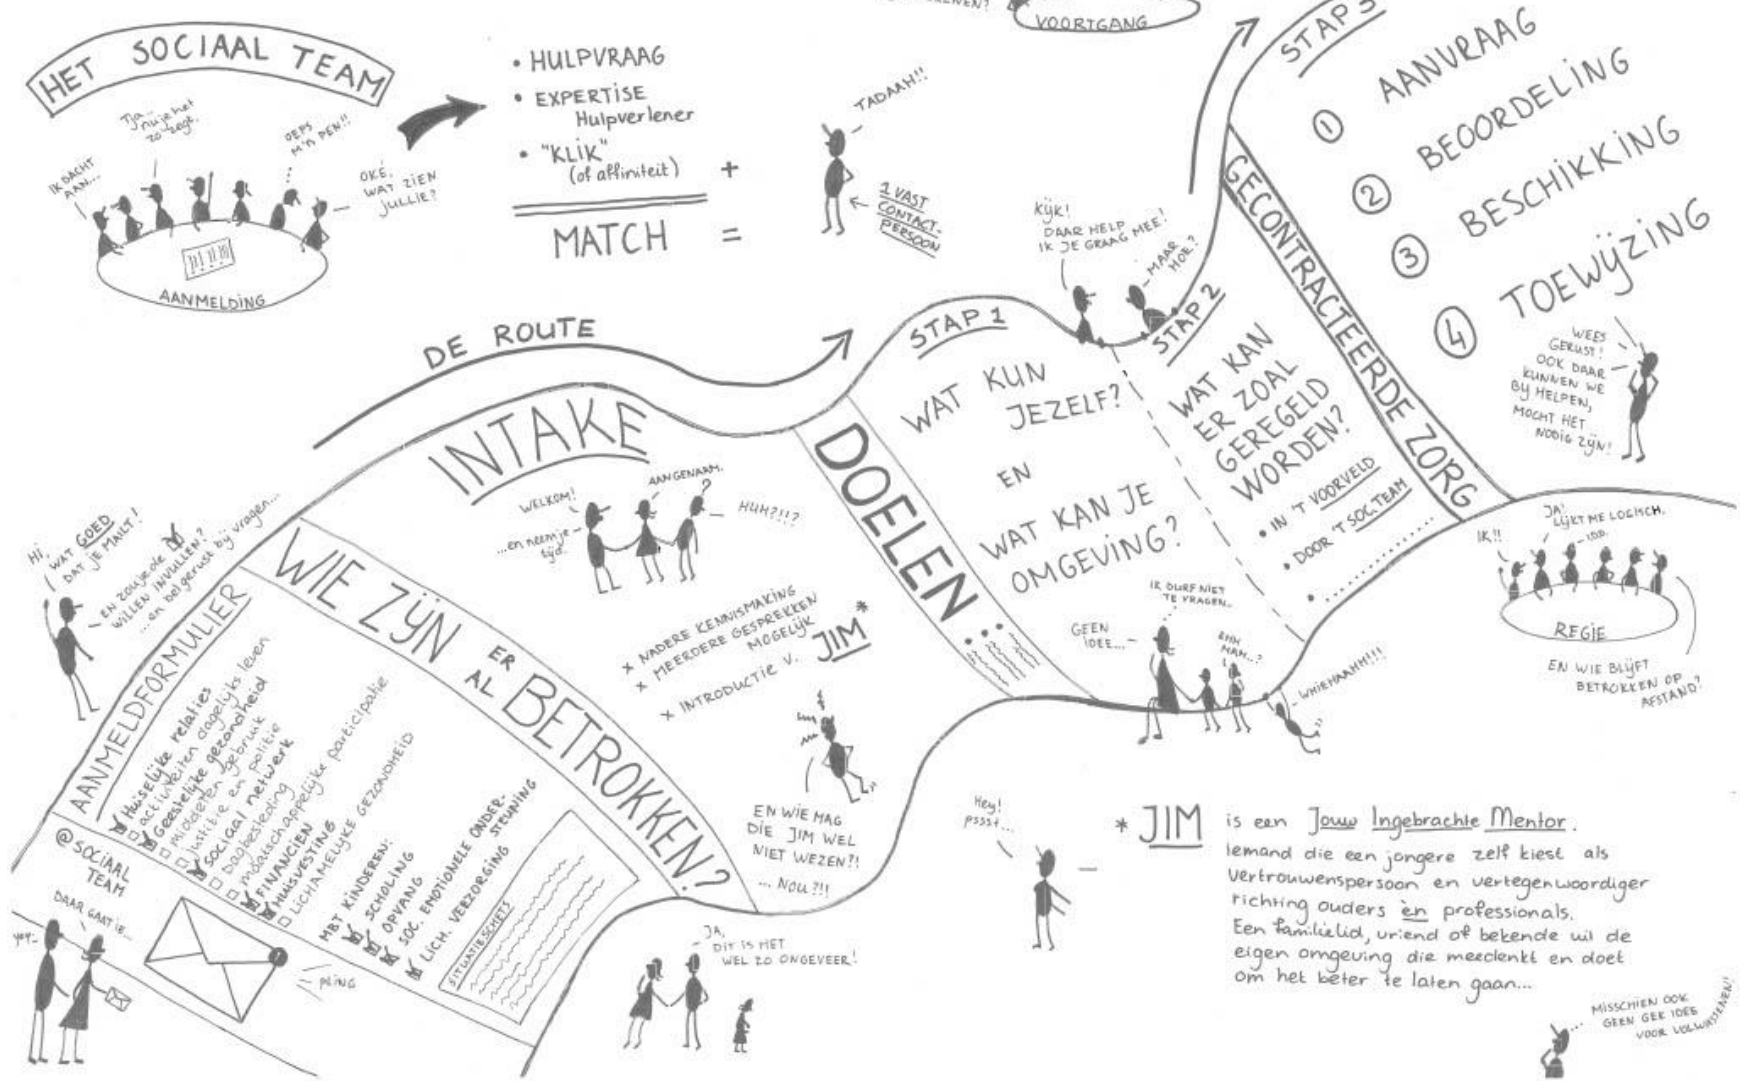 VOORTGANG
HET SOCIAAL TEAM
IK DACHT
AAN...
Tja...
nu je het
zo zegt.
OEPS
M'N PEN!!
OKÉ,
WAT ZIEN
JULLIE?
AANMELDING
• HULPVRAAG
• EXPERTISE
Hulpverlener
• "KLIK"
(of affiniteit)
+
MATCH =
TADAAH!!
1 VAST
CONTACT-
PERSOON
DE ROUTE
Hi,
WAT GOED
DAT JE MAILT!
EN ZOU JE DE
WILLEN INVULLEN?
...en bel gerust bij vragen...
@ SOCIAAL
TEAM
DAAR GAAT IE...
yep..
PLING
AANMELDFORMULIER
Huiselijke relaties
activiteiten dagelijks leven
Geestelijke gezondheid
middelen gebruik
justitie en politie
SOCIAAL NETWERK
dagbesteding
maatschappelijke participatie
FINANCIEN
HUISVESTING
LICHAMELIJKE GEZONDHEID
MBT KINDEREN:
SCHOLING
OPVANG
SOC. EMOTIONELE ONDER-
STEUNING
LICH. VERZORGING
SITUATIESCHETS
WIE ZIJN ER AL BETROKKEN?
JA,
DIT IS HET
WEL ZO ONGEVEER!
INTAKE
WELKOM!
...en neem je
tijd.
AANGENAAM.
?
HUH?!!?
x NADERE KENNISMAKING
x MEERDERE GESPREKKEN
MOGELIJK
x INTRODUCTIE V. JIM *
EN WIE MAG
DIE JIM WEL
NIET WEZEN?!
... NOU?!!
DOELEN:
STAP 1
WAT KUN
JEZELF?
EN
WAT KAN JE
OMGEVING?
GEEN
IDEE...
IK DURF NIET
TE VRAGEN..
EHH
MAM..?
WHIEHAAHH!!!
Kijk!
DAAR HELP
IK JE GRAAG MEE!
MAAR
HOE?
STAP 2
WAT KAN
ER ZOAL
GEREGELD
WORDEN?
• IN 'T VOORVELD
• DOOR 'T SOC. TEAM
• ..........
GECONTRACTEERDE ZORG
STAP 3
1 AANVRAAG
2 BEOORDELING
3 BESCHIKKING
4 TOEWIJZING
WEES
GERUST!
OOK DAAR
KUNNEN WE
BIJ HELPEN,
MOCHT HET
NODIG ZIJN!
IK!!
JA!
LIJKT ME LOGISCH.
REGIE
EN WIE BLIJFT
BETROKKEN OP
AFSTAND?
Hey!
pssst...
* JIM is een Jouw Ingebrachte Mentor.
Iemand die een jongere zelf kiest als
vertrouwenspersoon en vertegenwoordiger
richting ouders èn professionals.
Een familielid, vriend of bekende uit de
eigen omgeving die meedenkt en doet
om het beter te laten gaan...
MISSCHIEN OOK
GEEN GEK IDEE
VOOR VOLWASSENEN!!